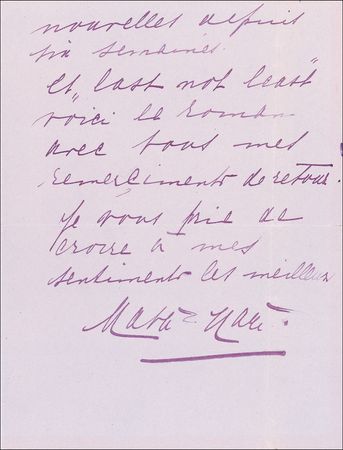 nouvelles depuis
six semaines.
Et, "last not least"
voici le roman
avec tous mes
remerciments de retour.
Je vous prie de
croire à mes
sentiments les meilleurs
Mata-Hari.